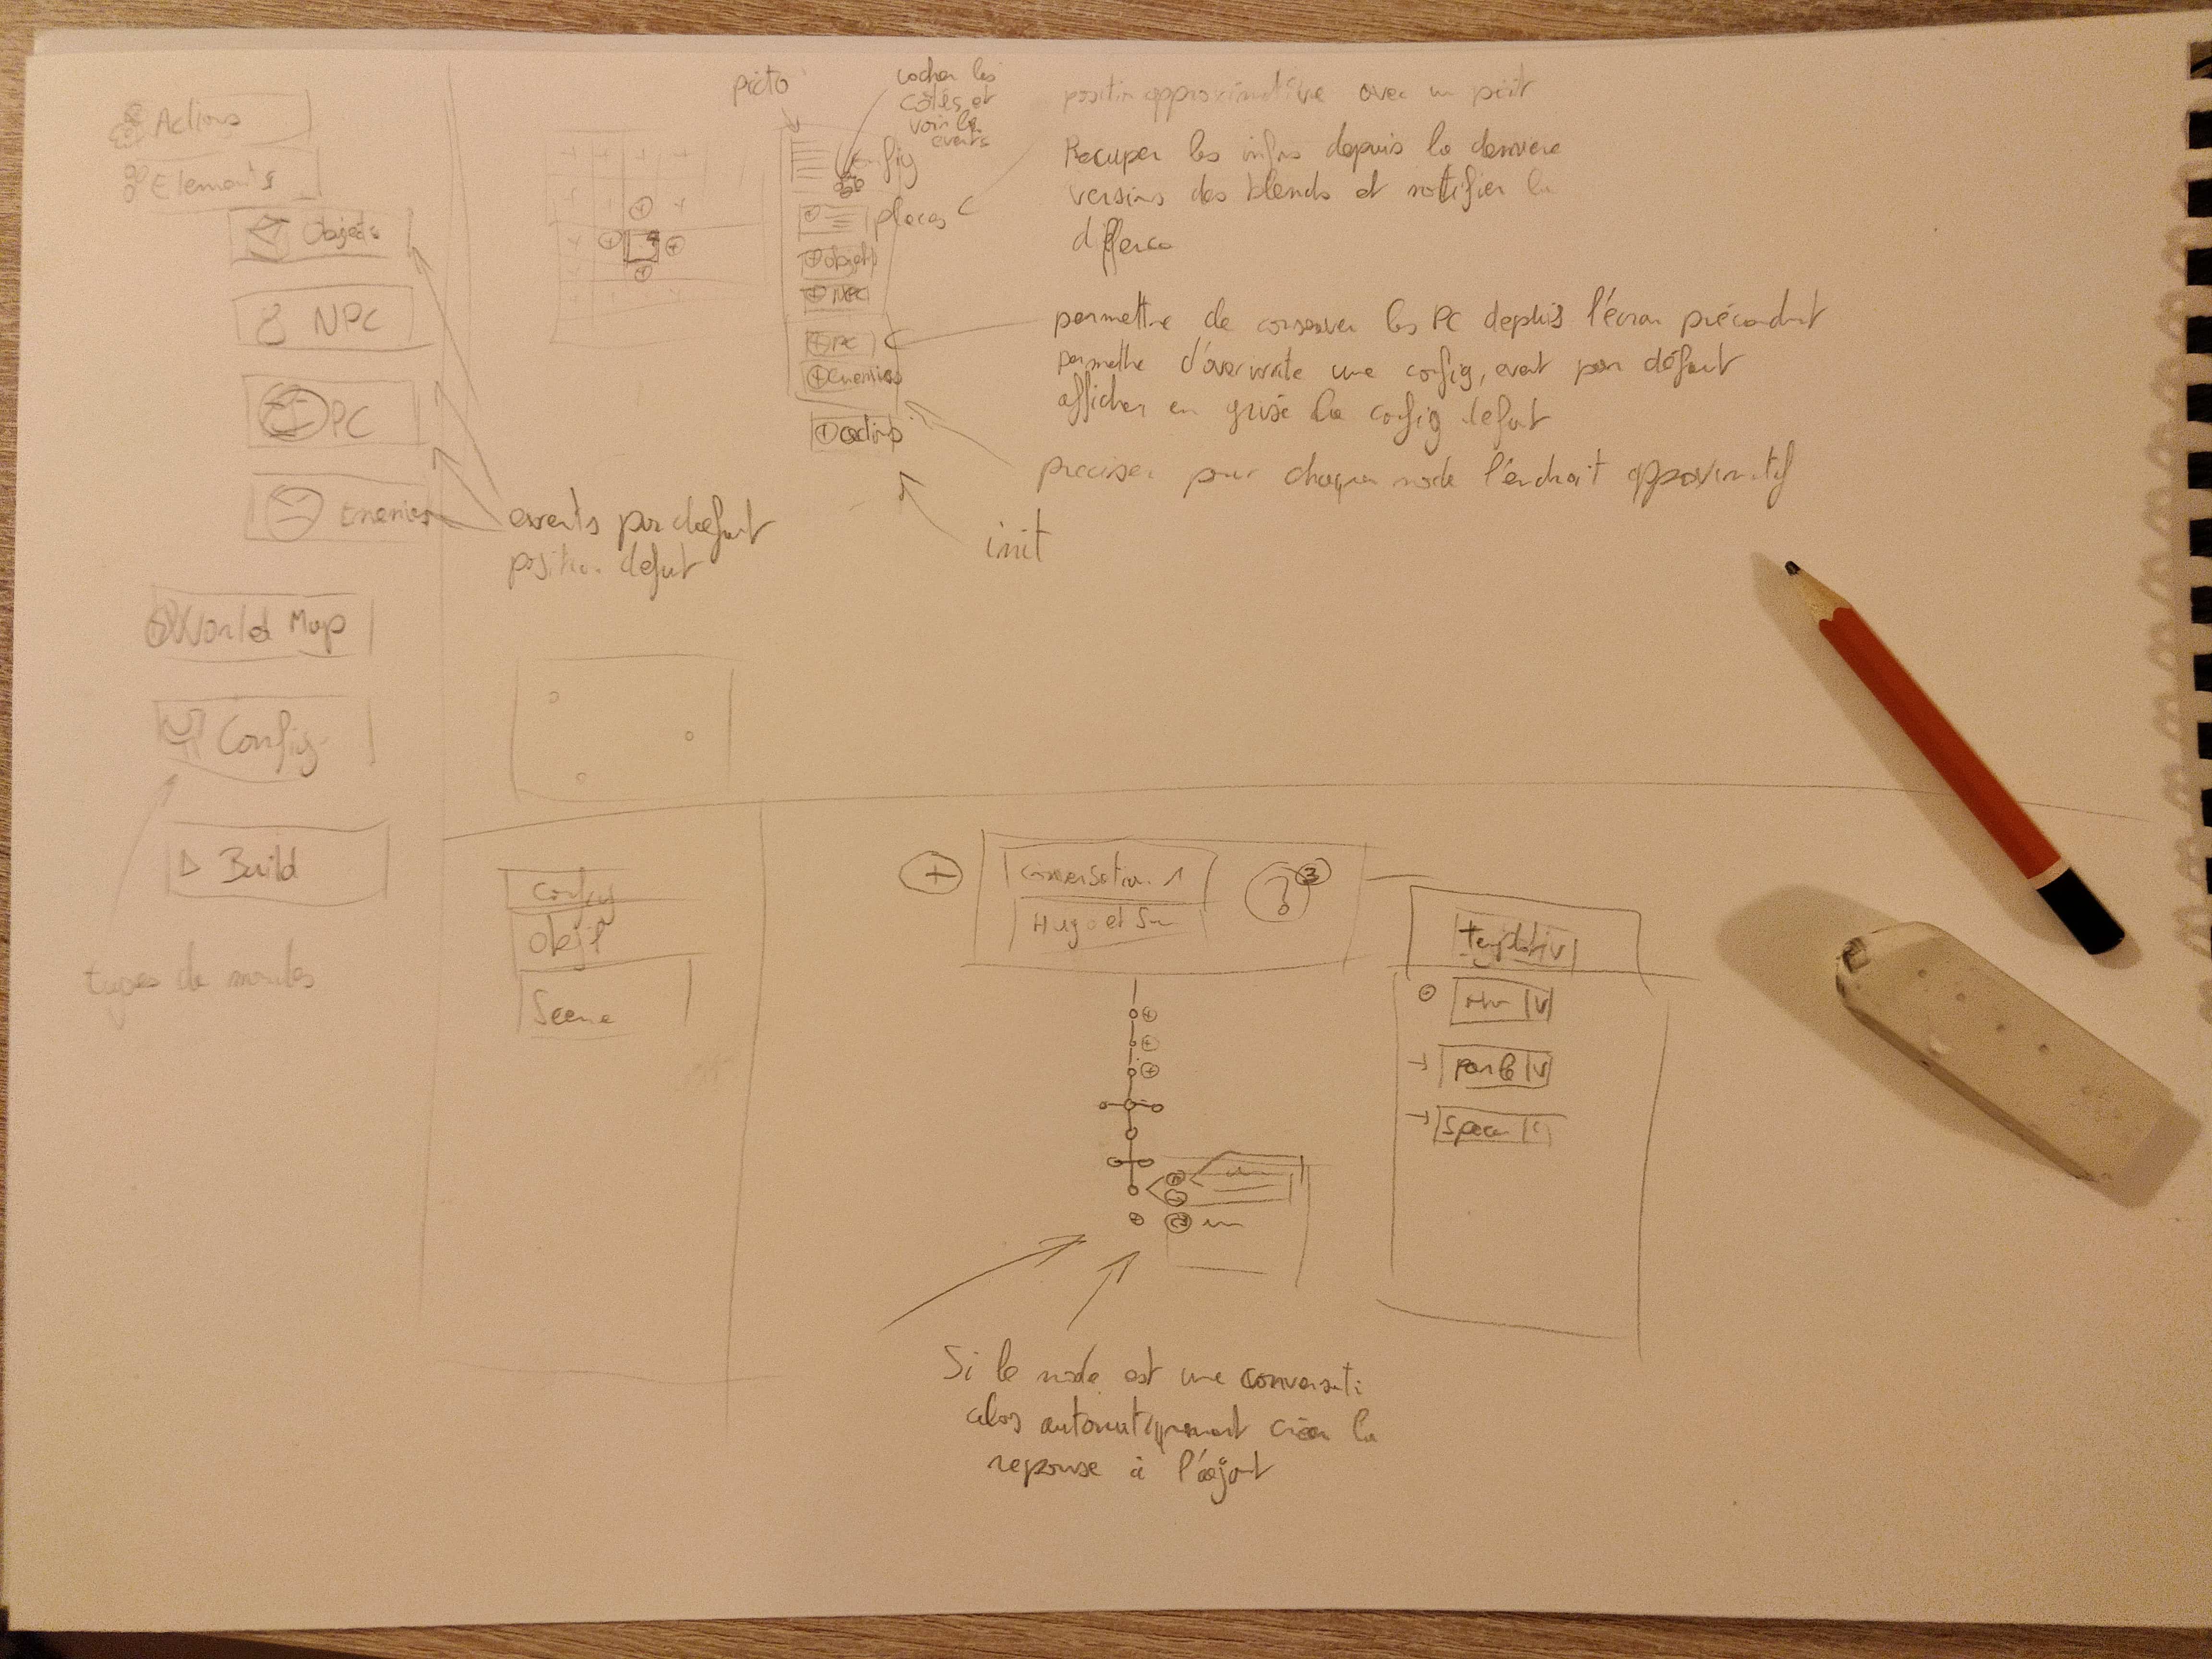 Actions
Elements
Objets
NPC
PC
Enemies
World Map
Config
Build
types de
events par defaut
position defaut
picto
cocher les
côtés et
voir les
events
config
places
Objet
NPC
PC
Enemies
actions
init
position approximative avec un
Recuper les infos depuis la derniere
versions des blends et notifier la
permettre de conserver les PC depuis l'écran précendent
permettre d'overwrite une config, event par défaut
afficher en grisé la config defaut
preciser pour chaque node l'endroit approximatif
Config
Objet
Scene
+
Conversation 1
Hugo et
? 3
Si le node est une conversati
alors automatiquement créer la
reponse à l'ajout